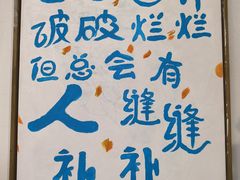 破破烂烂
但总会有
人缝缝
补补